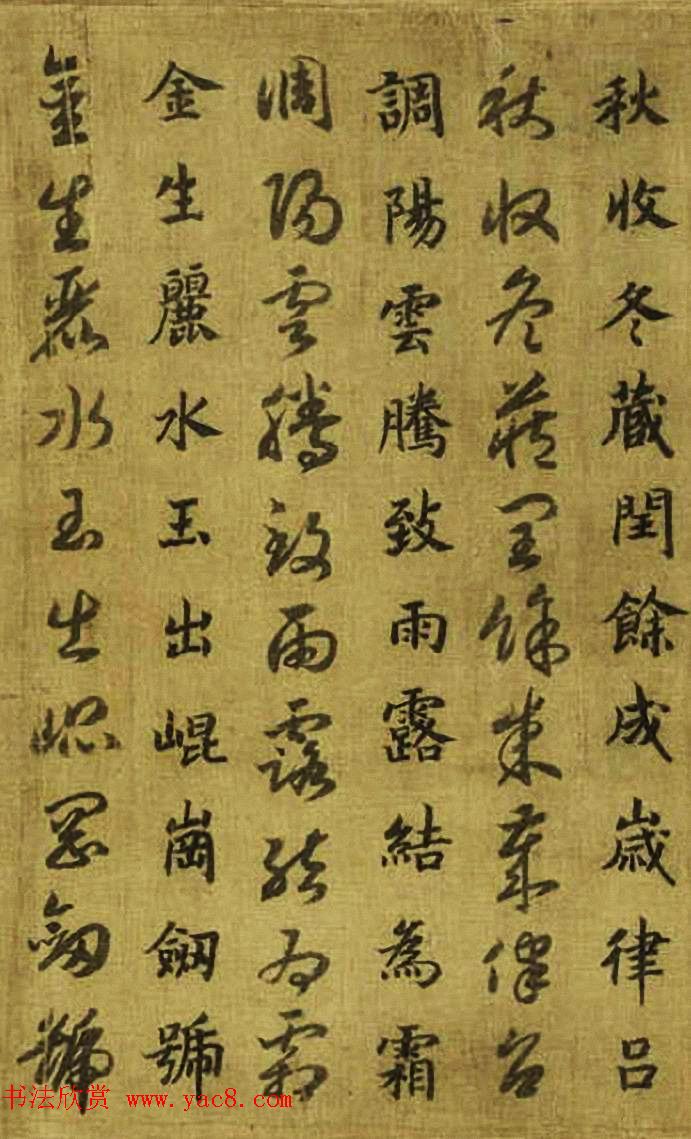 秋收冬蔵閏餘成歲律吕
秋收冬蔵閏餘成歲律吕
調陽雲騰致雨露結為霜
調陽雲騰致雨露結為霜
金生麗水玉出崐崗劔號
金生麗水玉出崐崗劔號
书法欣赏 www.yac8.com